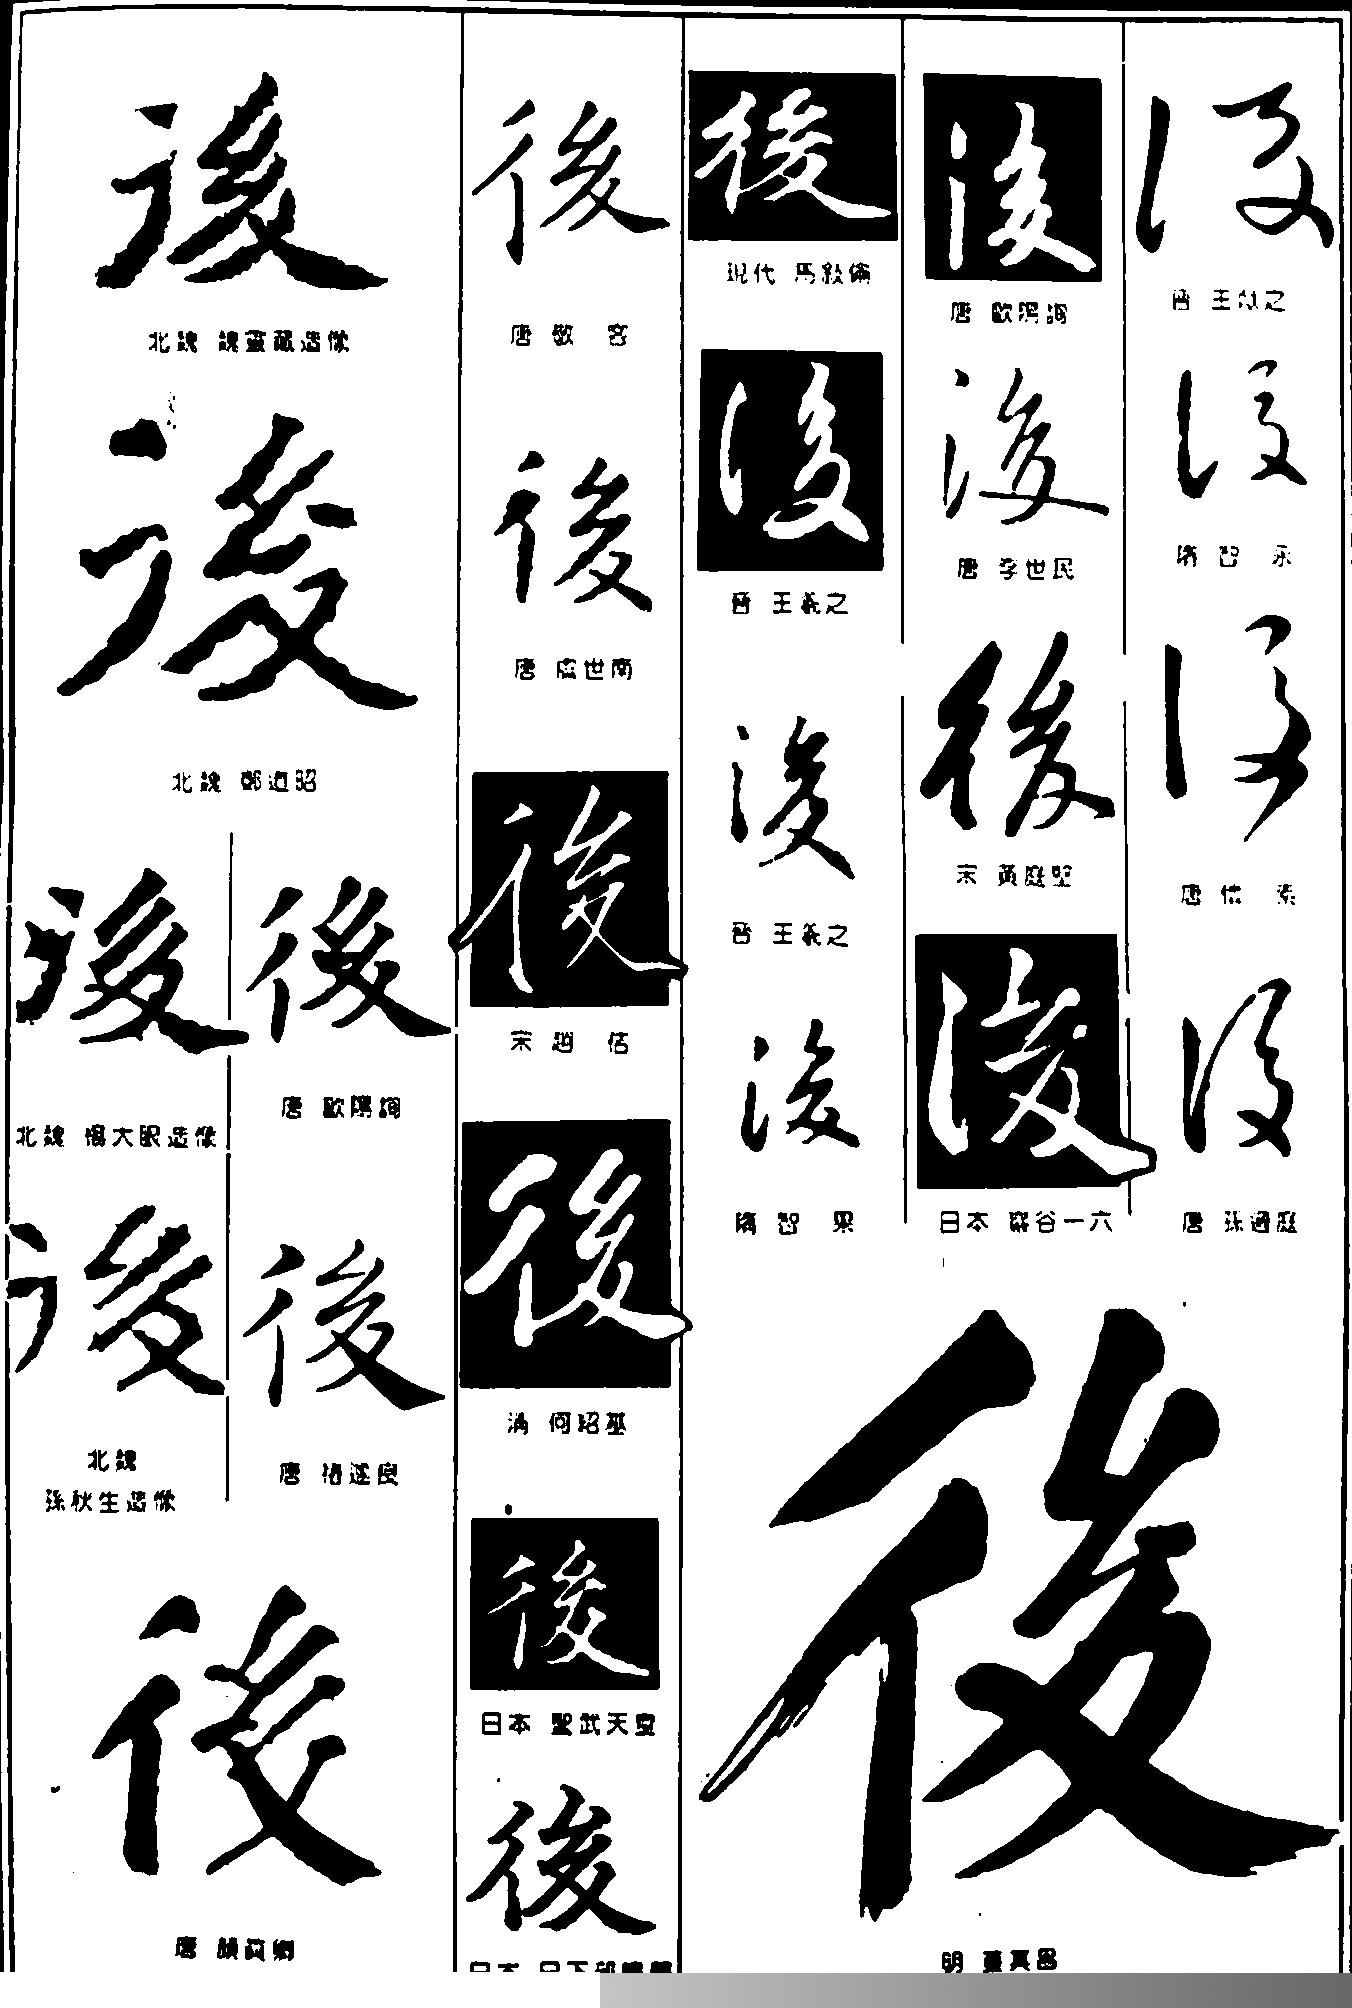 後
北魏 魏靈藏造像
後
北魏 鄭道昭
後
北魏 楊大眼造像
後
唐 歐陽詢
後
北魏
孫秋生造像
後
唐 褚遂良
後
唐 顏真卿
後
唐 敬 客
後
唐 虞世南
後
宋 趙 佶
後
清 何紹基
後
日本 聖武天皇
後
日本 日下部鳴鶴
後
現代 馬敘倫
後
晉 王羲之
後
晉 王羲之
後
隋 智 果
後
唐 歐陽詢
後
唐 李世民
後
宋 黃庭堅
後
日本 巖谷一六
後
晉 王獻之
後
隋 智 永
後
唐 懷 素
後
唐 孫過庭
後
明 董其昌